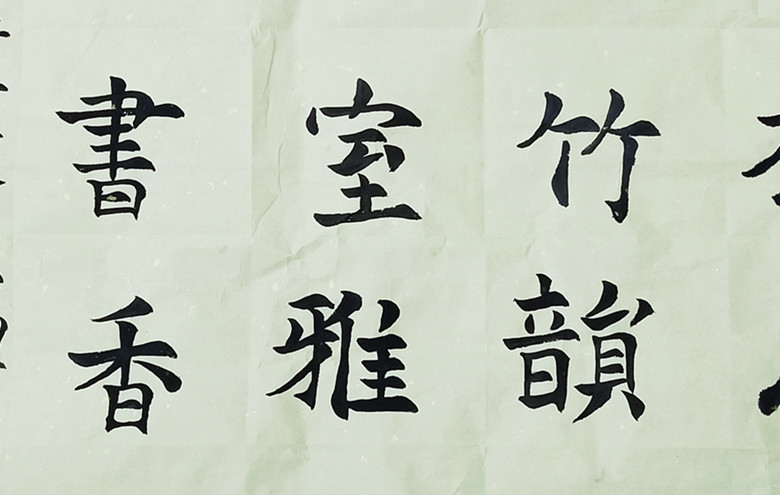 竹韻
室雅
書香